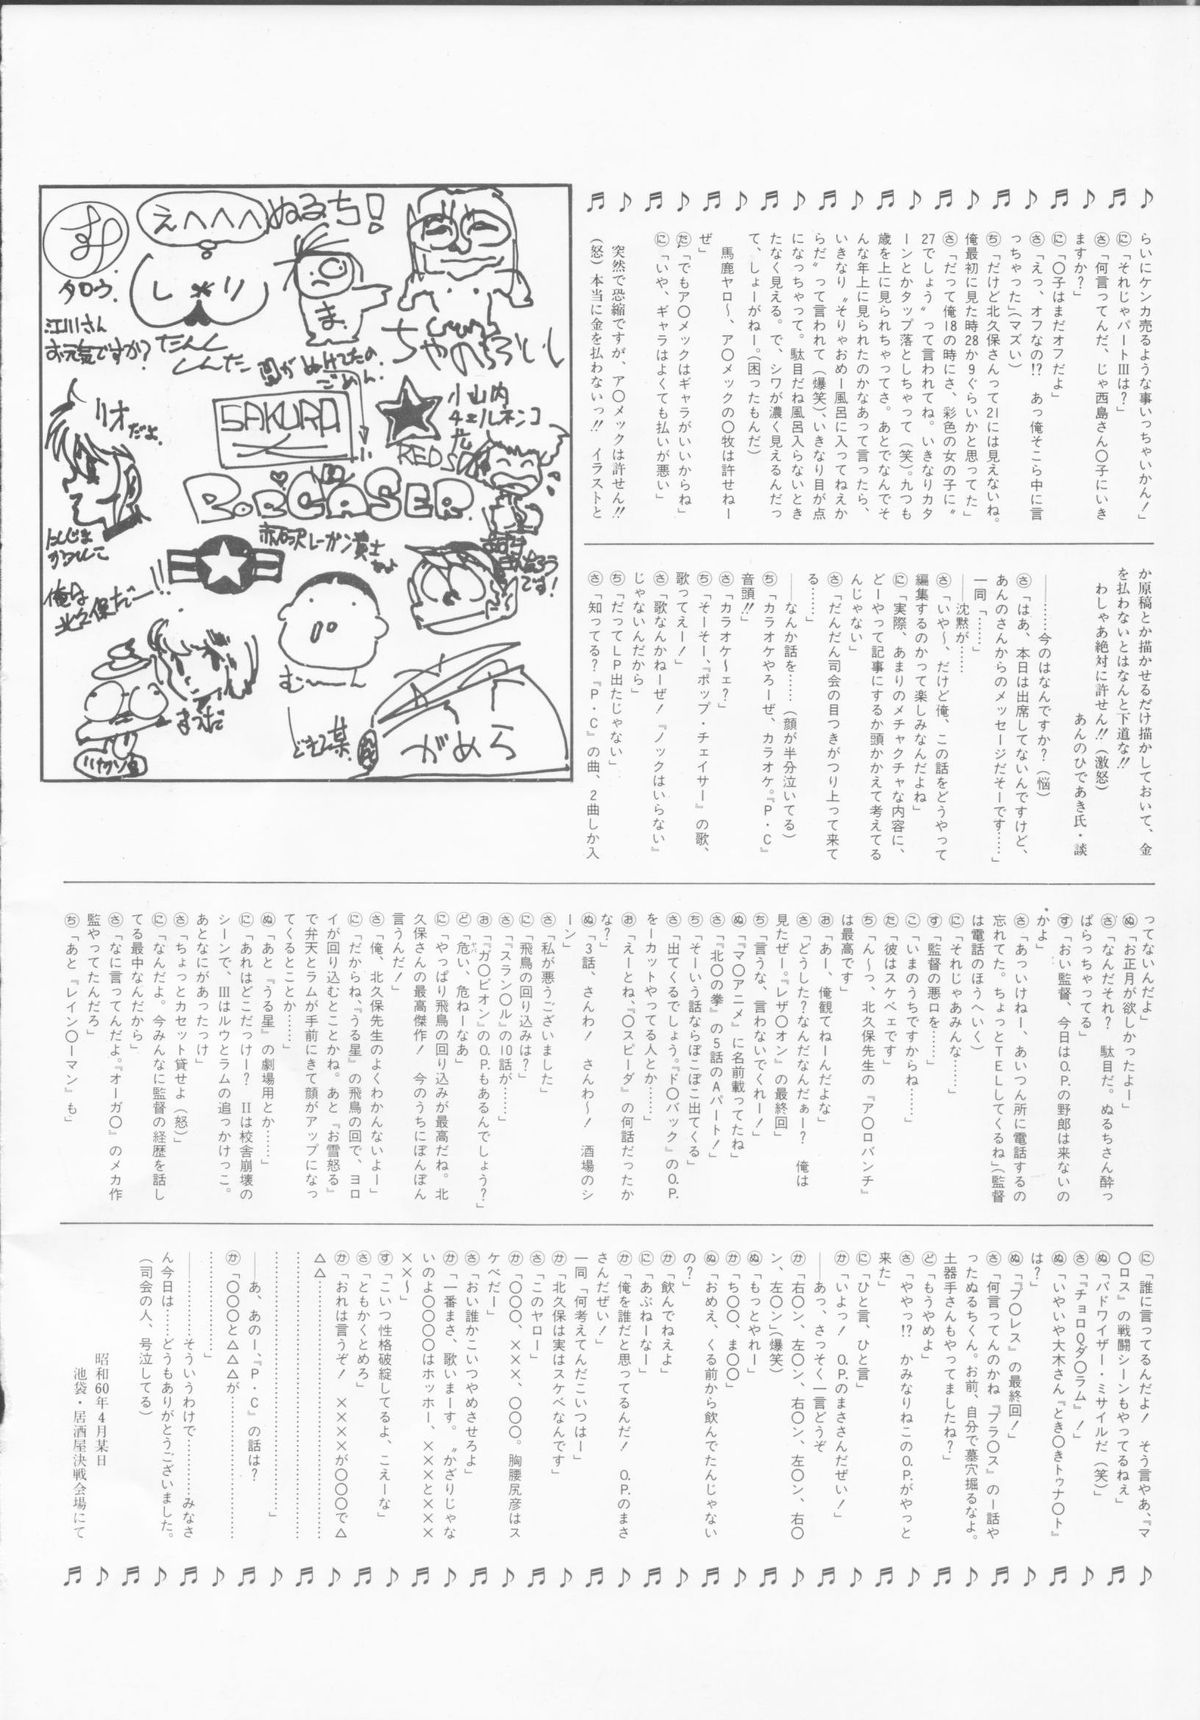 らいにケンカ売るような事いっちゃいかん！」
㋥「それじゃパートⅢは？」
㋚「何言ってんだ、じゃ西島さん〇子にいき
ますか？」
㋥「〇子はまだオフだよ」
㋚「えっ、オフなの!?　あっ俺そこら中に言
っちゃった」（マズい）
㋠「だけど北久保さんって21には見えないね。
俺最初に見た時28か9ぐらいかと思ってた」
㋚「だって俺18の時にさ、彩色の女の子に〝
27でしょう〟って言われてね。いきなりカタ
ーンとかタップ落としちゃって（笑）。九つも
歳を上に見られちゃってさ。あとでなんでそ
んな年上に見られたのかなあって言ったら、
いきなり〝そりゃおめー風呂に入ってねえか
らだ〟って言われて（爆笑）、いきなり目が点
になっちゃって。駄目だね風呂入らないとき
たなく見える。で、シワが濃く見えるんだっ
て、しょーがねー。（困ったもんだ）
　馬鹿ヤロ〜、ア〇メックの〇牧は許せねー
ぜ」
㋟「でもア〇メックはギャラがいいからね」
㋥「いや、ギャラはよくても払いが悪い」
　突然で恐縮ですが、ア〇メックは許せん!!
（怒）本当に金を払わないっ!!　イラストと
か原稿とか描かせるだけ描かしておいて、金
を払わないとはなんと下道な!!
わしゃあ絶対に許せん!!（激怒）
あんのひであき氏・談
――………今のはなんですか？（悩）
㋚「はあ、本日は出席してないんですけど、
あんのさんからのメッセージだそーです……」
一同「………」
――沈黙が……
㋚「いや〜、だけど俺、この話をどうやって
編集するのかって楽しみなんだよね」
㋥「実際、あまりのメチャクチャな内容に、
どーやって記事にするか頭かかえて考えてる
んじゃない」
㋚「だんだん司会の目つきがつり上って来て
る………」
――なんか話を……（顔が半分泣いてる）
㋠「カラオケやろーぜ、カラオケ。『P・C』
音頭!!」
㋚「カラオケ〜ェ？」
㋠「そーそー、『ポップ・チェイサー』の歌、
歌ってえー！」
㋚「歌なんかねーぜ！『ノックはいらない』
じゃないんだから」
㋠「だってLP出たじゃない」
㋚「知ってる？『P・C』の曲、2曲しか入
ってないんだよ」
㋦「お正月が欲しかったよー」
㋚「なんだそれ？　駄目だ。ぬるちさん酔っ
ぱらっちゃってる」
㋜「おい監督、今日はO.P.の野郎は来ないの
かよ」
㋚「あっいけねー、あいつん所に電話するの
忘れてた。ちょっとTELしてくるね」（監督
は電話のほうへいく）
㋥「それじゃあみんな……」
㋜「監督の悪口を……」
㋙「いまのうちですからね……」
㋟「彼はスケベェです」
㋠「ん〜っ、北久保先生の『ア〇ロバンチ』
は最高です」
㋔「あー、俺観てねーんだよな」
㋚「どうした？なんだなんだぁー？　俺は
見たぜー。『レザ〇オン』の最終回」
㋠「言うな、言わないでくれー！」
㋦「『マ〇アニメ』に名前載ってたね」
㋚「『北〇の拳』の5話のAパート！」
㋠「そーいう話ならぽこぽこ出てくる」
㋚「出てくるでしょう。『ド〇バック』のO.P.
をーカットやってる人とか……」
㋔「えーとね、『〇スピーダ』の何話だったか
な？」
㋦「3話、さんわ！　さんわ〜！　酒場のシ
ーン」
㋚「私が悪うございました」
㋥「飛鳥の回り込みは？」
㋚「『スラン〇ル』の10話が……」
㋔「『ガ〇ビオン』のO.P.もあるんでしょう？」
㋣「危い、危ねーなあ」
㋥「やっぱり飛鳥の回り込みが最高だね。北
久保さんの最高傑作！　今のうちにぽんぽん
言うんだ！」
㋚「俺、北久保先生のよくわかんないよー」
㋥「だからね、『うる星』の飛鳥の回で、ヨロ
イが回り込むとことかね。あと『お雪怒る』
で弁天とラムが手前にきて顔がアップになっ
てくるとことか……」
㋦「あと『うる星』の劇場用とか……」
㋥「あれはどこだっけー？　Ⅱは校舎崩壊の
シーンで、Ⅲはルウとラムの追っかけっこ。
あとなにがあったっけ
㋚「ちょっとカセット貸せよ（怒）」
㋥「なんだよ。今みんなに監督の経歴を話し
てる最中なんだから」
㋚「なに言ってんだよ。『オーガ〇』のメカ作
監やってたんだろ」
㋠「あと『レイン〇ーマン』も」
㋥「誰に言ってるんだよ！　そう言やあ、『マ
〇ロス』の戦闘シーンもやってるねぇ」
㋦「バドワイザー・ミサイルだ（笑）」
㋚「『チョロQダ〇ラム』！」
㋦「いやいや大木さん『とき〇きトゥナ〇ト』
は？」
㋦「『プ〇レス』の最終回！」
㋚「何言ってんのかね『プラ〇ス』の１話や
ったぬるちくん。お前、自分で墓穴掘るなよ。
土器手さんもやってましたね？」
㋣「もうやめよ」
㋚「ややっ!?　かみなりねこのO.P.がやっと
来た」
㋥「ひと言、ひと言」
㋕「いよっ！　O.P.のまささんだぜい！」
――あっ、さっそく一言どうぞ
㋕「右〇ン、左〇ン、右〇ン、左〇ン、右〇
ン、左〇ン」（爆笑）
㋦「もっとやれー」
㋕「ち〇〇、ま〇〇」
㋦「おめえ、くる前から飲んでたんじゃない
の？」
㋕「飲んでねえよ」
㋥「あぶねーなー」
㋕「俺を誰だと思ってるんだ！　O.P.のまさ
さんだぜい！」
一同「何考えてんだこいつはー」
㋕「北久保は実はスケベなんです」
㋚「このヤロー」
㋕「〇〇〇、×××、〇〇〇。胸腰尻彦はス
ケベだー」
㋚「おい誰かこいつやめさせろよ」
㋕「一番まさ、歌いまーす。〝かざりじゃな
いのよ〇〇〇〇はホッホー、×××と×××
××〜」
㋜「こいつ性格破綻してるよ、こえーな」
㋚「ともかくとめろ」
㋕「おれは言うぞ！　××××が〇〇〇で△
△△……………………………………
……………………………………」
――あ、あのー、『P・C』の話は？
㋕「〇〇〇と△△△が…………………
………………」
――………そういうわけで………みなさ
ん今日は……どうもありがとうございました。
（司会の人、号泣してる）
昭和60年4月某日
池袋・居酒屋決戦会場にて
す
タロウ.
えへへへ
ぬるち！
江川さん
お元気ですか？
たんしんした
ま
間がぬけてたの
ごめん.
リオだよ.
SAKURA
小山内
チェルネンコ
RED STAR
P.CHASER
赤沢レーガン貴士
にしじま
かつひこ
俺な
北久保だー!!
むーん
まつだ
がめら
です！